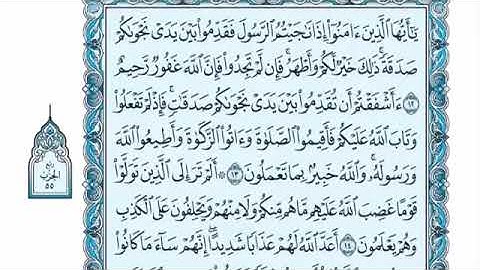 يَـٰٓأَيُّهَا ٱلَّذِينَ ءَامَنُوٓا۟ إِذَا نَـٰجَيْتُمُ ٱلرَّسُولَ فَقَدِّمُوا۟ بَيْنَ يَدَىْ نَجْوَىٰكُمْ
صَدَقَةً ۚ ذَٰلِكَ خَيْرٌ لَّكُمْ وَأَطْهَرُ ۚ فَإِن لَّمْ تَجِدُوا۟ فَإِنَّ ٱللَّهَ غَفُورٌ رَّحِيمٌ
١٢ ءَأَشْفَقْتُمْ أَن تُقَدِّمُوا۟ بَيْنَ يَدَىْ نَجْوَىٰكُمْ صَدَقَـٰتٍ ۚ فَإِذْ لَمْ تَفْعَلُوا۟
وَتَابَ ٱللَّهُ عَلَيْكُمْ فَأَقِيمُوا۟ ٱلصَّلَوٰةَ وَءَاتُوا۟ ٱلزَّكَوٰةَ وَأَطِيعُوا۟ ٱللَّهَ
وَرَسُولَهُۥ ۚ وَٱللَّهُ خَبِيرٌۢ بِمَا تَعْمَلُونَ ١٣ ۞ أَلَمْ تَرَ إِلَى ٱلَّذِينَ تَوَلَّوْا۟
قَوْمًا غَضِبَ ٱللَّهُ عَلَيْهِم مَّا هُم مِّنكُمْ وَلَا مِنْهُمْ وَيَحْلِفُونَ عَلَى ٱلْكَذِبِ
وَهُمْ يَعْلَمُونَ ١٤ أَعَدَّ ٱللَّهُ لَهُمْ عَذَابًا شَدِيدًا ۖ إِنَّهُمْ سَآءَ مَا كَانُوا۟
ربع
الحزب
٥٥